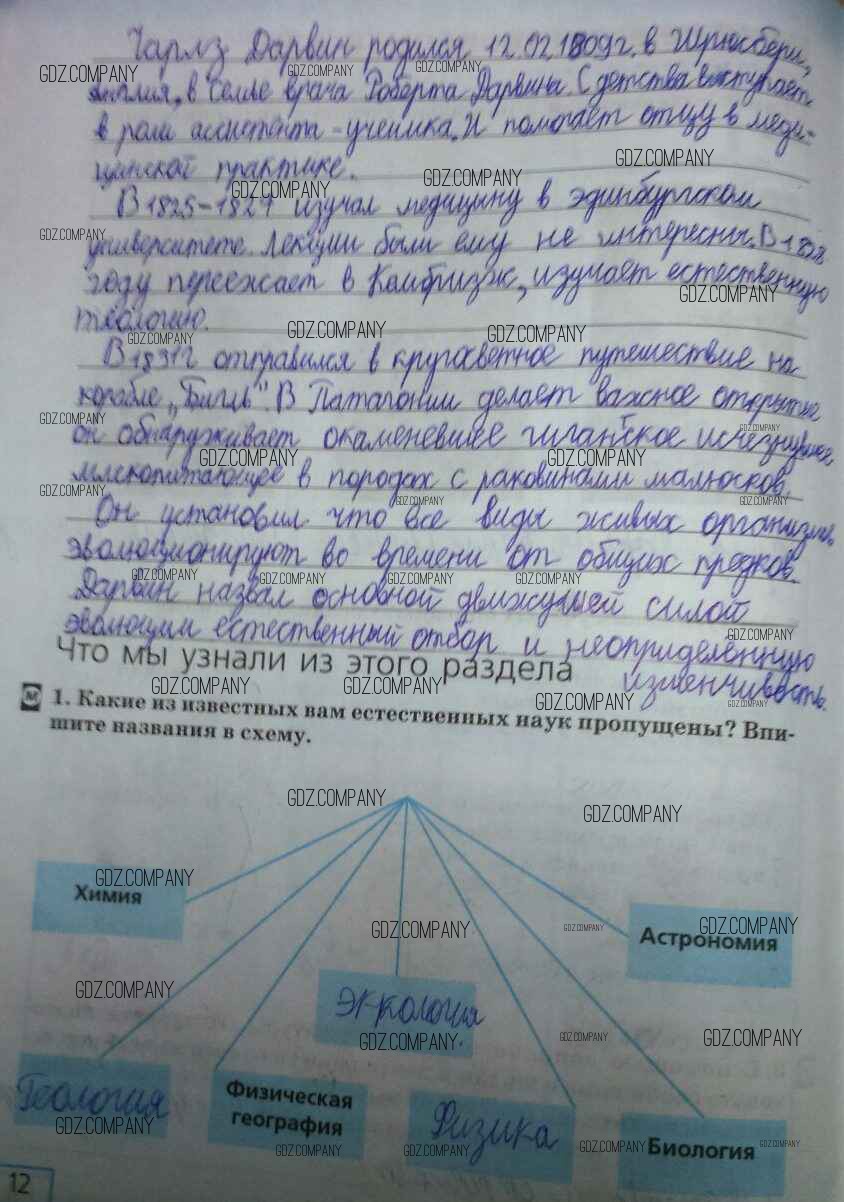 Чарлз Дарвин родился 12.02.1809г. в Шрюсбери,
Англия, в семье врача Роберта Дарвина. С детства выступает
в роли ассистента-ученика. И помогает отцу в меди-
цинской практике.
В 1825-1827 изучал медицину в эдинбургском
университете. Лекции были ему не интересны. В 1828
году переезжает в Кембридж, изучает естественную
теологию.
В 1831г отправился в кругосветное путешествие на
корабле „Бигль". В Патагонии делает важное открытие
он обнаруживает окаменевшее гигантское исчезнувшее
млекопитающее в породах с раковинами малюсков.
Он установил что все виды живых организмов
эволюционируют во времени от общих предков.
Дарвин назвал основной движущей силой
эволюции естественный отбор и неоприделённую
изменчивость.
Что мы узнали из этого раздела
1. Какие из известных вам естественных наук пропущены? Впи-
шите названия в схему.
Химия
Астрономия
Эккология
Геология
Физическая
география
Физика
Биология
12
GDZ.COMPANY